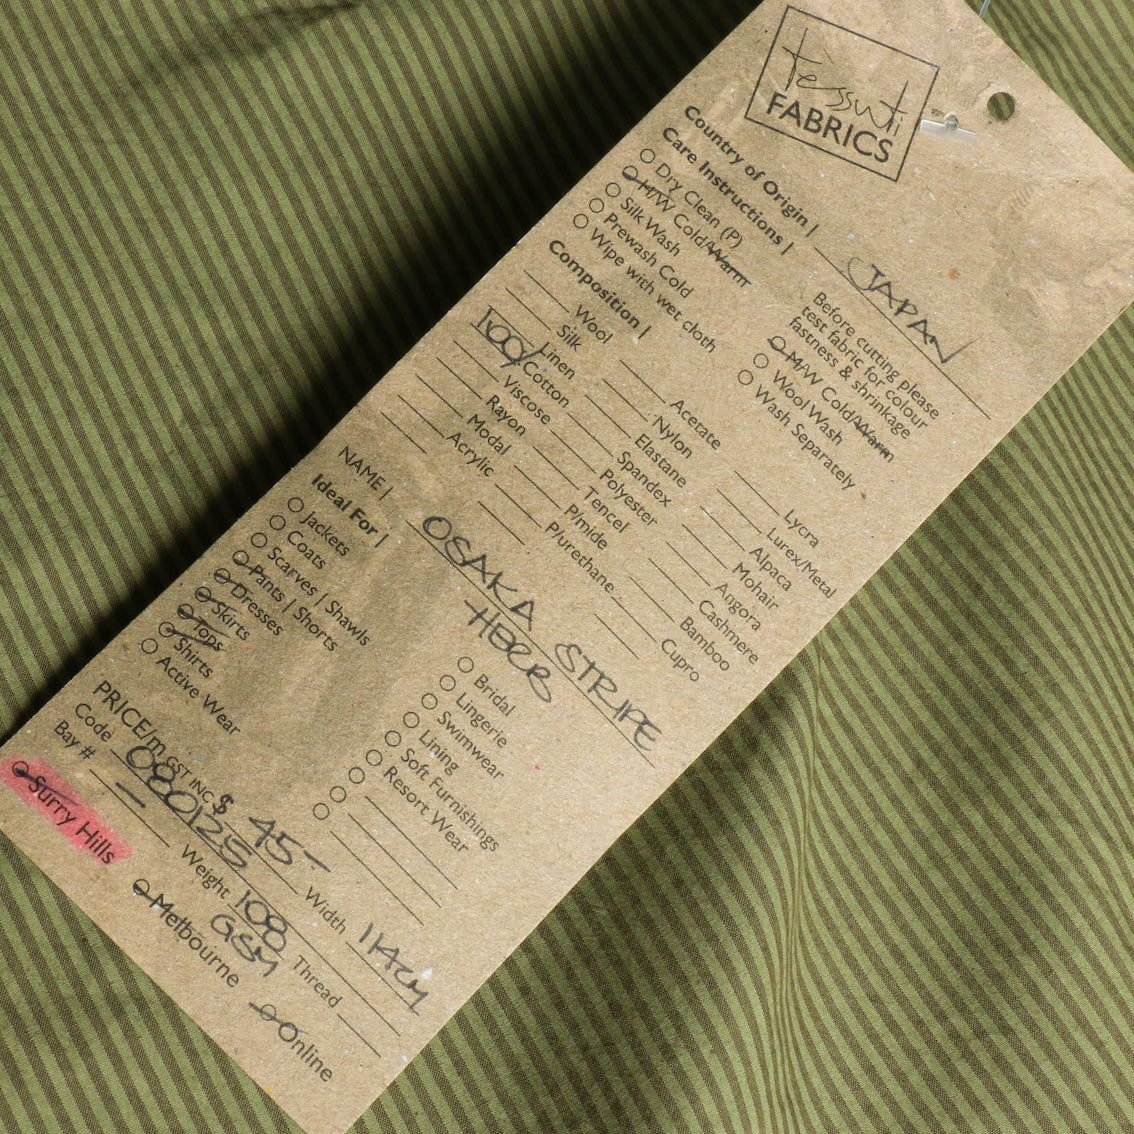 tessuti
FABRICS
Country of Origin | JAPAN
Care Instructions |
Dry Clean (P)
H/W Cold/Warm
Silk Wash
Prewash Cold
Wipe with wet cloth
Before cutting please
test fabric for colour
fastness & shrinkage
M/W Cold/Warm
Wool Wash
Wash Separately
Composition |
Wool
Silk
Linen
100% Cotton
Viscose
Rayon
Modal
Acrylic
Acetate
Nylon
Elastane
Spandex
Polyester
Tencel
P/mide
P/urethane
Lycra
Lurex/Metal
Alpaca
Mohair
Angora
Cashmere
Bamboo
Cupro
NAME | OSAKA STRIPE
HERB
Ideal For |
Jackets
Coats
Scarves | Shawls
Pants | Shorts
Dresses
Skirts
Tops
Shirts
Active Wear
Bridal
Lingerie
Swimwear
Lining
Soft Furnishings
Resort Wear
PRICE/m GST INC $ 45-
Width 114cm
Code 080125
Weight 108
GSM
Thread
Bay # -
Surry Hills
Melbourne
Online